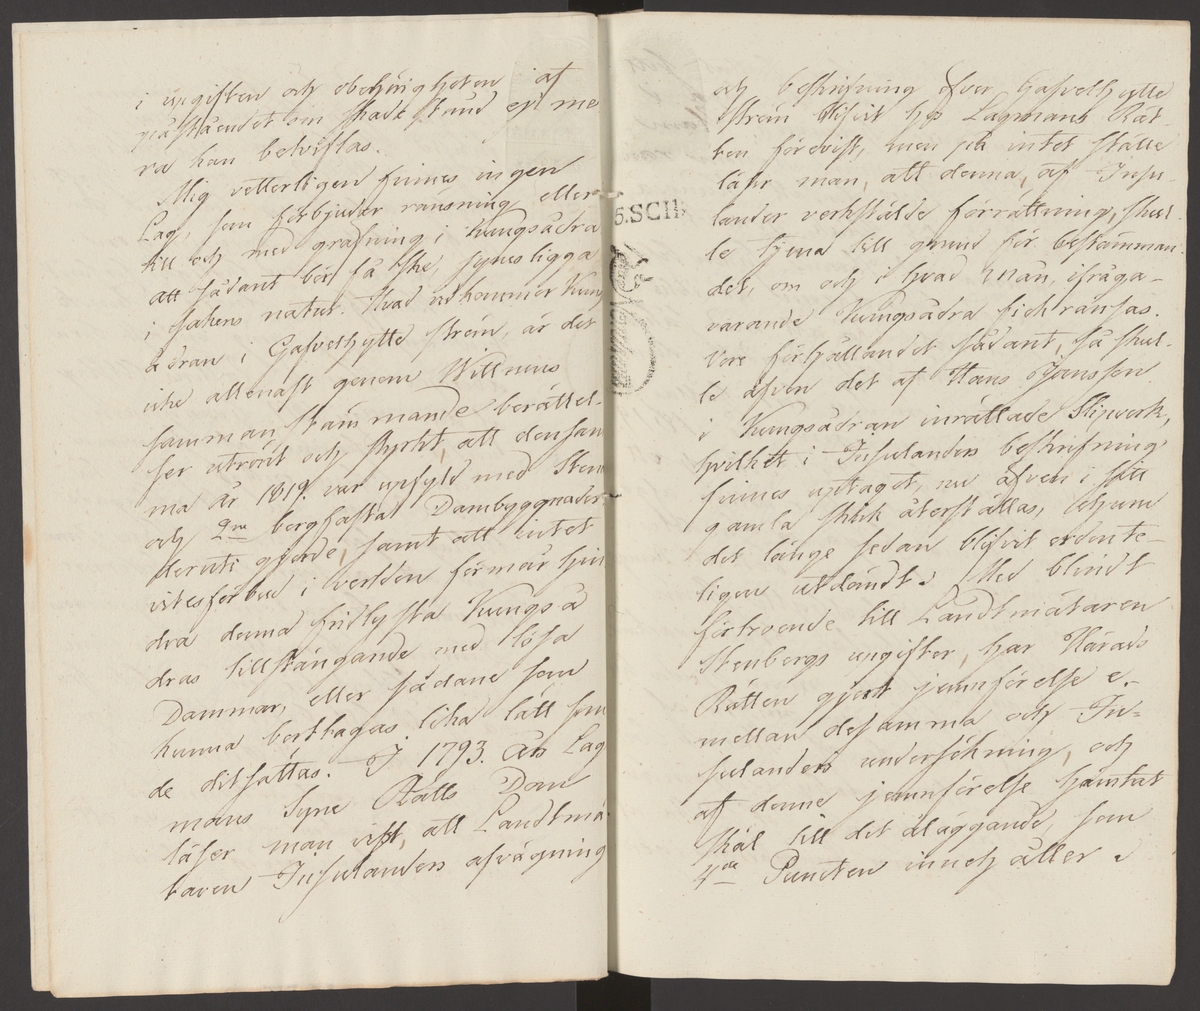 i upgiften och obehörigheten af
påståendet om skadestånd ej me
ra kan betviflas.
Mig vetterligen finnes ingen
Lag, som förbjuder ransning eller
till och med grafning i Kungsådra
att sådant bör få ske, synes ligga
i sakens natur. Hvad vidkommer Kungs
ådran i Gasvethytte ström, är det
icke allenast genom Willnens
sammanstämmande berättel-
ser utrönt och styrkt, att densam
ma år 1819. var upfyld med Sten
och 2ne bergfasta Dambyggnader
deruti gjorde, samt att intet
vitesförbud i verlden förmår hin
dra denna fridlysta Kungså
dras tillstängande med lösa
Dammar, eller sådane som
kunna borttagas lika lätt som
de ditsattas. I 1793. års Lag
mans Syne Rätts Dom
läser man visst, att Landtmä
taren Insulanders afvägning
och beskrifning öfver Gasvethytte
ström blifvit hos Lagmans Rät-
ten förevist, men på intet ställe
lähr man, att denna, af Insu-
lander verkstälde förrättning, skul-
le tjena till grund för bestämman-
det, om och i hvad mån, ifråga-
varande Kungsådra fick ransas.
Vore förhållandet sådant, så skul-
le äfven det af Hans Jansson
i Kungsådran inrättade Slipverk,
hvilket i Insulanders beskrifning
finnes uptaget, nu äfven i sitt
gamla skick återställas, ehuru
det länge sedan blifvit ordente-
ligen utdömdt. Med blindt
förtroende till Landtmätaren
Stenbergs upgifter, har Härads
Rätten gjort jemnförelse e-
mellan desamma och In-
sulanders undersökning, och
af denne jemnförelse hämtat
skäl till det åläggande, som
4de Puncten innehåller.
5.SCH